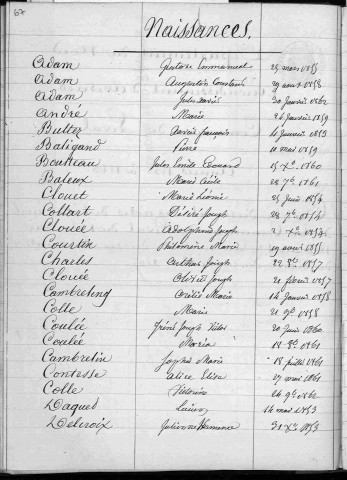 67
Naissances.
Adam Gustave Emmanuel 25 mars 1855
Adam Augustin Constant 29 aout 1858
Adam Jules 30 Janvier 1862
André Marie 24 Janvier 1859
Butter Xavier françois 4 Janvier 1853
Baligand Pierre 11 mai 1859
Boutteau Jules Emile Edouard 15 Xbre 1860
Bateux Marie Cécile 28 7bre 1861
Clouet Marie Léonie 25 Juin 1854
Collart Désiré Joseph 28 7bre 1854
Clouée Adolphine Joseph 2 Xbre 1854
Courtin Philomène Marie 19 avril 1855
Charles Arthur Joseph 22 8bre 1857
Clouée Clovis Joseph 21 février 1857
Cambreling Marie 14 Janvier 1858
Colle Marie 21 9bre 1858
Coulée Iréné Joseph Victor 20 Juin 1860
Coulée Maria 18 8bre 1861
Cambrelin Sophie Marie 18 Juillet 1861
Contesse Alice Elisa 27 mai 1861
Colle Victoire 24 9bre 1862
Daquet Louis 14 mai 1853
Delcroix Julienne Hermance 31 Xbre 1853